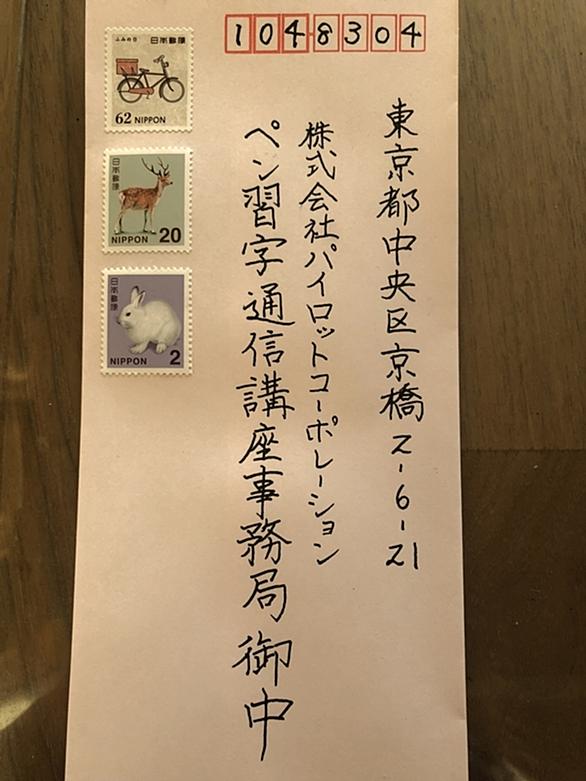 1048304
東京都中央区京橋2-6-21
株式会社パイロットコーポレーション
ペン習字通信講座事務局御中
ふみの日 日本郵便
62 NIPPON
日本郵便
NIPPON 20
日本郵便
NIPPON 2